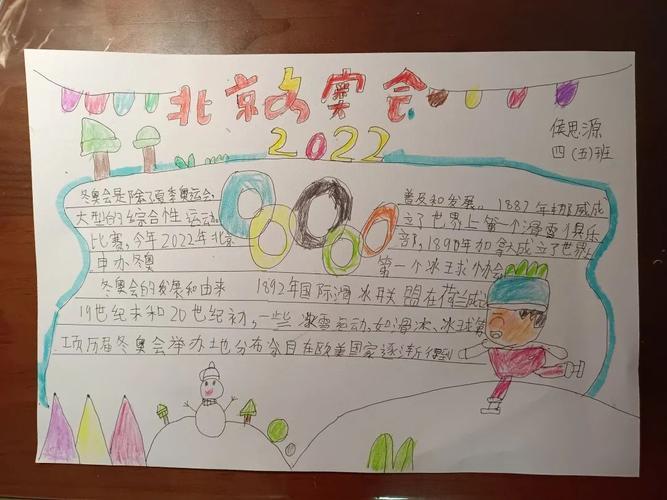 北京冬奥会
2022
侯思源
四(五)班
冬奥会是除了夏季奥运会,
大型的综合性运动
比赛,今年2022年北京
申办冬奥
普及和发展。1887年挪威成
立了世界上第一个滑雪俱乐
部,1890年加拿大成立了世界上
第一个冰球协会
冬奥会的发展和由来 1892年国际滑冰联盟在荷兰成
19世纪末和20世纪初,一些冰雪运动,如滑冰、冰球等
项历届冬奥会举办地分布今日在欧美国家逐渐得到